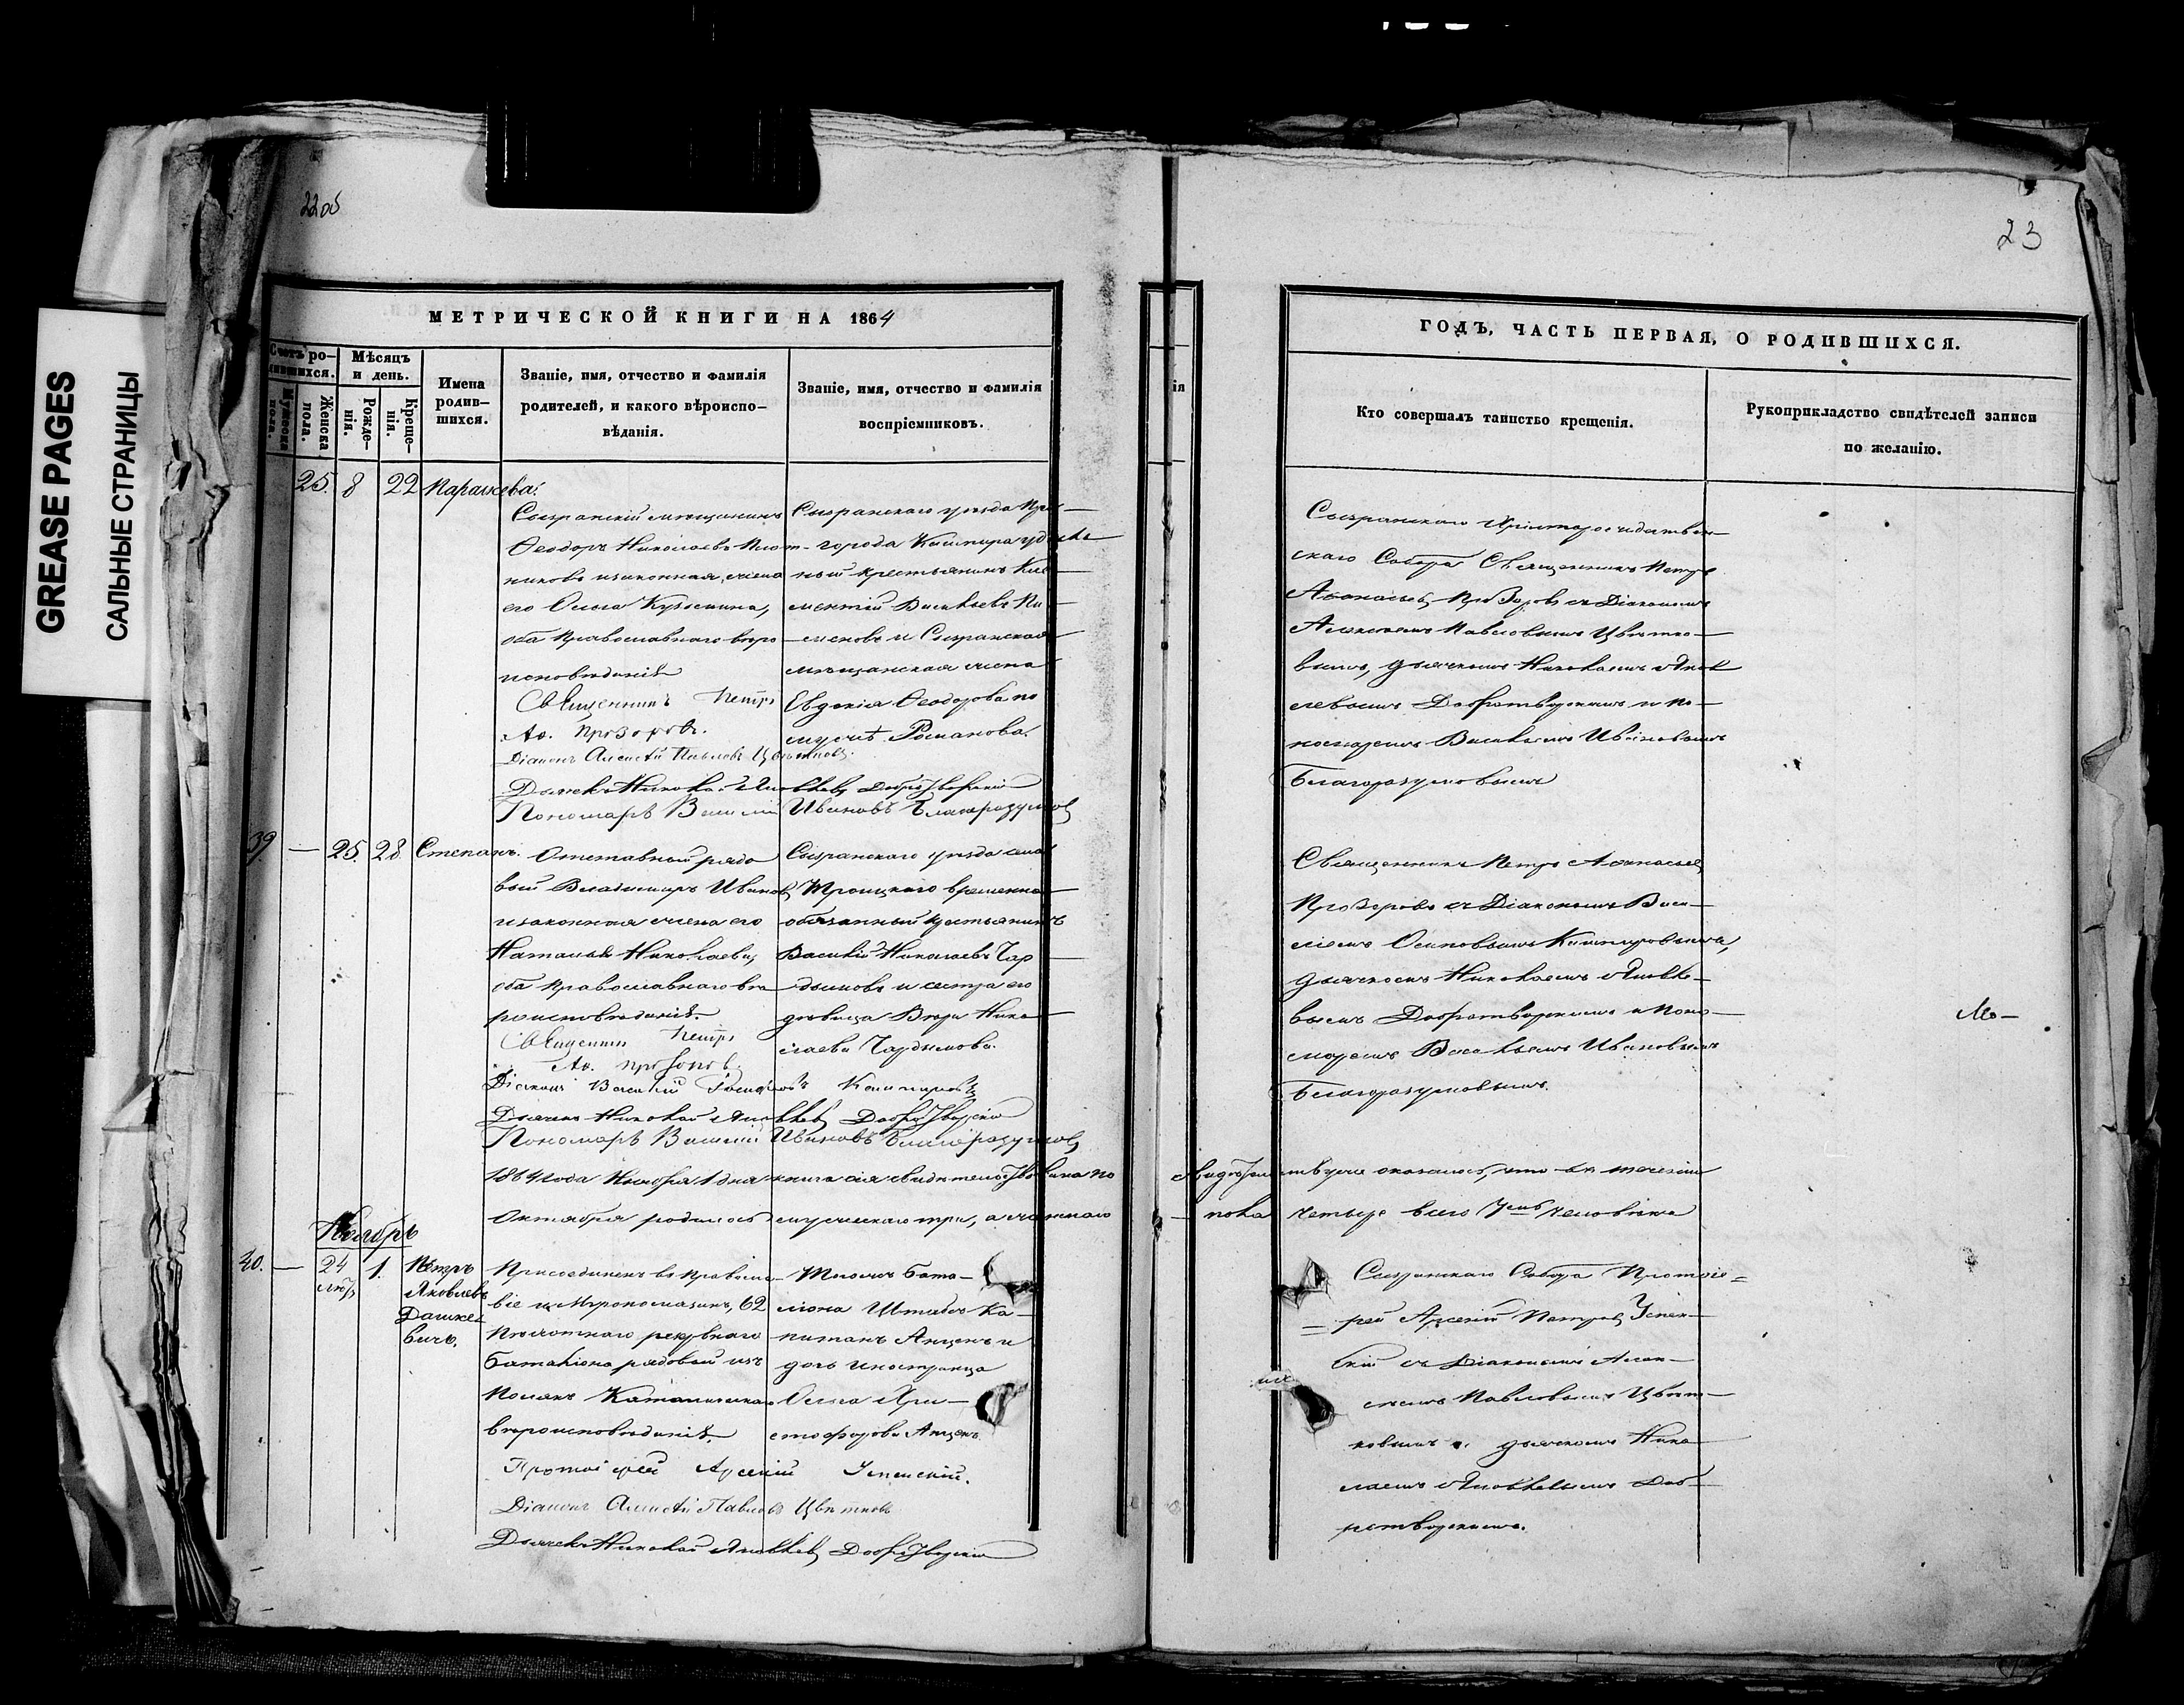 GREASE PAGES
САЛЬНЫЕ СТРАНИЦЫ
22об
МЕТРИЧЕСКОЙ КНИГИ НА 1864
Счетъ ро-
дившихся.
Мужеска
пола.
Женска
пола.
Мѣсяцъ
и день.
Рожде-
нія.
Креще-
нія.
Имена
родив-
шихся.
Званіе, имя, отчество и фамилія
родителей, и какого вѣроиспо-
вѣданія.
Званіе, имя, отчество и фамилія
воспріемниковъ.
25. 8 22 Параскева.
Сызранскій мѣщанинъ
Ѳеодоръ Николаевъ Плот-
никовъ и законная жена
его Ольга Кузьмина,
оба Православнаго вѣро
исповѣданія
Священникъ Петръ
Аѳ. Прозоровъ.
Діаконъ Алексѣй Павловъ Цвѣтковъ.
Дьячекъ Николай Яковлевъ Добротворскій
Пономарь Василій Ивановъ Благоразумовъ
Сызранскаго уѣзда При-
города Кашпира удѣль
ный крестьянинъ
Васильевъ
и Сызранская
мѣщанская жена
Евдокія Ѳеодорова по
мужѣ Романова.
39. — 25. 28. Степанъ.
Отставной рядо
вый Владимиръ Ивановъ
и законная жена его
Наталья Николаева,
оба Православнаго вѣ
роисповѣданія.
Священникъ Петръ
Аѳ. Прозоровъ.
Діаконъ Василій Кашпировъ
Дьячекъ Николай Яковлевъ Добротворскій
Пономарь Василій Ивановъ Благоразумовъ
Сызранскаго уѣзда села
Троицкаго временно
обязанный крестьянинъ
Василій Николаевъ Чар
дымовъ и сестра его
дѣвица Вѣра Нико
лаева Чардымова.
1864 года Ноября 1 дня книга сія свидѣтельствована по
Октября родилось мужескаго три, а женскаго
Ноябрь
40. — 24 1. Петръ
Яковлевъ
Дашке
вичъ.
Присоединенъ въ Правосла
віе и Мѵропомазанъ, 62
Пѣхотнаго резервнаго
баталіона рядовой изъ
Полякъ Католическаго
вѣроисповѣданія.
Протоіерей Арсеній Успенскій.
Діаконъ Алексѣй Павловъ Цвѣтковъ
Дьячекъ Николай Яковлевъ Добротворскій
Тогожъ Бата-
ліона Штабсъ Ка-
питанъ и
дочь иностранца
Ольга Хри-
стофорова
23
ГОДЪ, ЧАСТЬ ПЕРВАЯ, О РОДИВШИХСЯ.
Кто совершалъ таинство крещенія.
Рукоприкладство свидѣтелей записи
по желанію.
Сызранскаго Христорождествен
скаго Собора Священникъ Петръ
Аѳанасьевъ Прозоровъ съ Діакономъ
Алексѣемъ Павловымъ Цвѣтко-
вымъ, дьячкомъ Николаемъ Яков
левымъ Добротворскимъ и По-
номаремъ Васильемъ Ивановымъ
Благоразумовымъ
Священникъ Петръ Аѳанасьевъ
Прозоровъ съ Діакономъ Васи-
ліемъ Осиповымъ Кашпировымъ,
дьячкомъ Николаемъ Яковле-
вымъ Добротворскимъ и Поно-
маремъ Васильемъ Ивановымъ
Благоразумовымъ.
свидѣтельствуемъ оказалось, что въ теченіи
пола четыре всего семь человѣкъ
Сызранскаго Собора Протоіе=
=рей Арсеній Петровъ Успен-
скій съ Діакономъ Алек-
сѣемъ Павловымъ Цвѣт-
ковымъ и дьячкомъ Нико
лаемъ Яковлевымъ Доб-
ротворскимъ.